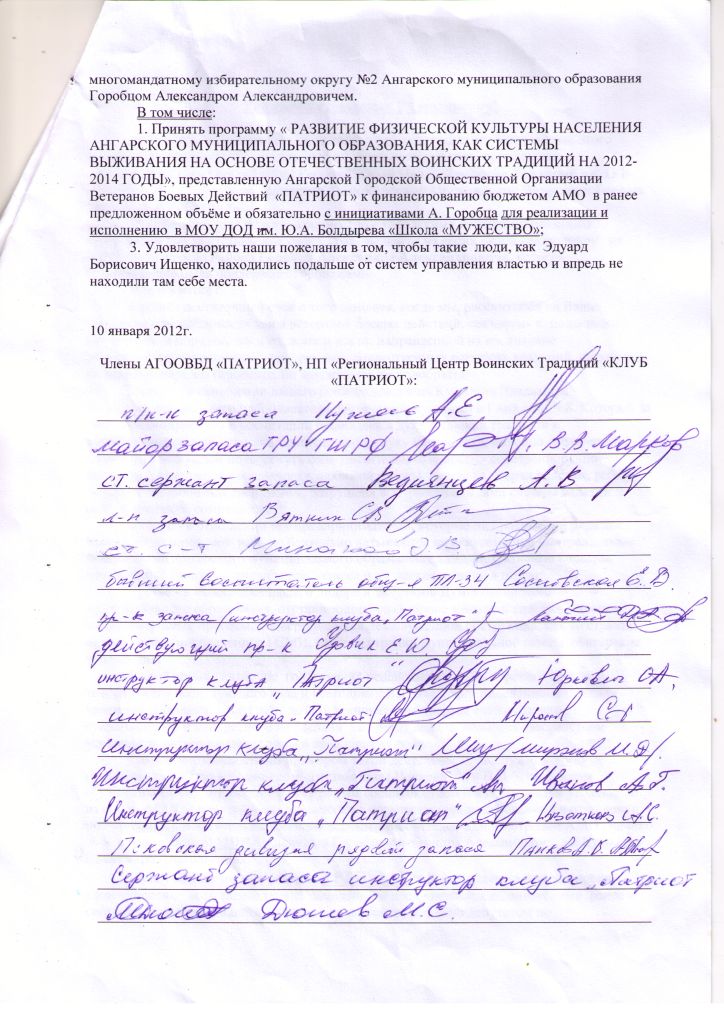 многомандатному избирательному округу №2 Ангарского муниципального образования
Горобцом Александром Александровичем.
В том числе:
1. Принять программу « РАЗВИТИЕ ФИЗИЧЕСКОЙ КУЛЬТУРЫ НАСЕЛЕНИЯ
АНГАРСКОГО МУНИЦИПАЛЬНОГО ОБРАЗОВАНИЯ, КАК СИСТЕМЫ
ВЫЖИВАНИЯ НА ОСНОВЕ ОТЕЧЕСТВЕННЫХ ВОИНСКИХ ТРАДИЦИЙ НА 2012-
2014 ГОДЫ», представленную Ангарской Городской Общественной Организации
Ветеранов Боевых Действий «ПАТРИОТ» к финансированию бюджетом АМО в ранее
предложенном объёме и обязательно с инициативами А. Горобца для реализации и
исполнению в МОУ ДОД им. Ю.А. Болдырева «Школа «МУЖЕСТВО»;
3. Удовлетворить наши пожелания в том, чтобы такие люди, как Эдуард
Борисович Ищенко, находились подальше от систем управления властью и впредь не
находили там себе места.
10 января 2012г.
Члены АГООВБД «ПАТРИОТ», НП «Региональный Центр Воинских Традиций «КЛУБ
«ПАТРИОТ»:
п/п-к запаса А.Е
майор запаса ГРУ ГШ РФ В.В. Марков
ст. сержант запаса Ведиянцев А.В
запаса Вяткин С В
ст. с-т
бывший воспитатель Сосновская Е.В.
пр-к запаса (инструктор клуба „Патриот"
действующий пр-к Удовик Е.Ю.
инструктор клуба „Патриот" Юркевич О А.
инструктор клуба „Патриот
Инструктор клуба „Патриот"
Инструктор клуба „Патриот" Иванов А.Г.
Инструктор клуба „Патриот"
Псковская дивизия рядовой запаса
Сержант запаса инструктор клуба „Патриот
Дютев М.С.